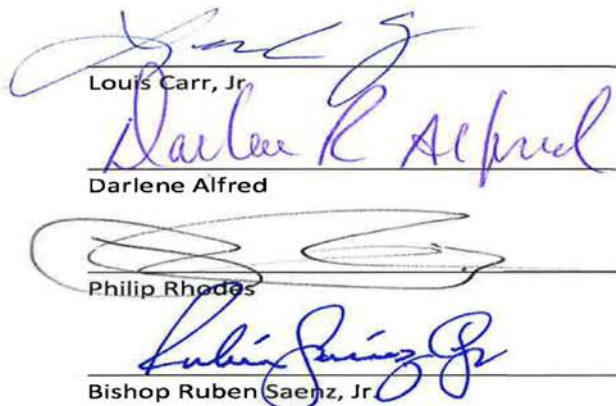 Louis Carr, Jr
Darlene R Alfred
Darlene Alfred
Philip Rhodes
Rubén Saénz Jr
Bishop Ruben Saenz, Jr.